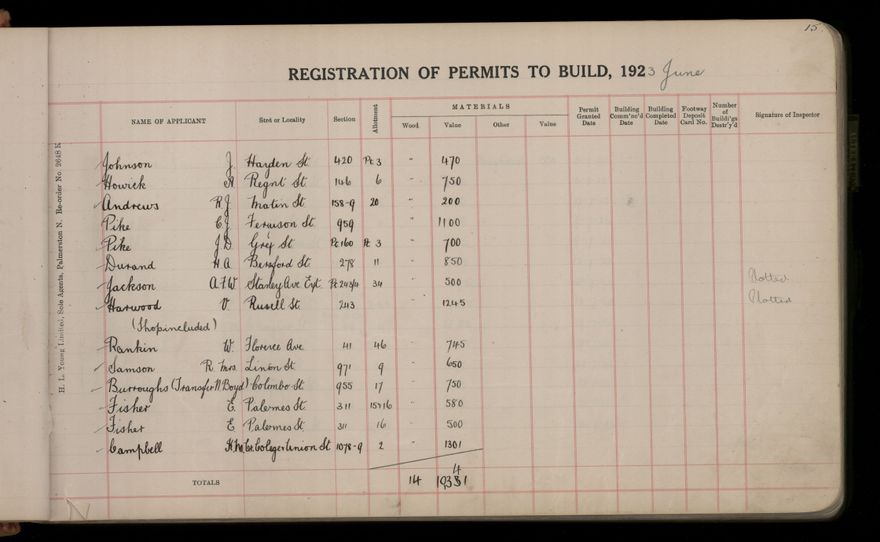 15
REGISTRATION OF PERMITS TO BUILD, 1923 June
MATERIALS
NAME OF APPLICANT Stret or Locality Section Allotment Wood Value Other Value Permit Granted Date Building Comm'nc'd Date Building Completed Date Footway Deposit Card No. Number of Buildi'gs Destr'y'd Signature of Inspector
Johnson J. Hayden St. 420 Pt 3 " 470
Howick A. Regnt St. 146 6 " 750
Andrews R.J. Matin St. 158-9 20 " 200
Pike C.J. Ferguson St. 959 " 1100
Pike J.D. Grey St. Pt 160 Pt 3 " 700
Durand H.A. Beresford St. 278 11 " 850
Jackson A.F.W. Stanley Ave Ext. Pt 243/4 34 " 500 Plotted
Harwood V. Rusell St. 243 " 1245 Plotted
(Shop included)
Rankin W. Florence Ave 41 46 " 745
Samson R. Mrs. Linon St. 971 9 " 650
Burroughs (Transfer N Boyd) Colombo St. 955 17 " 750
Fisher E. Palernes St. 311 15 & 16 " 580
Fisher E. Palernes St. 311 16 " 500
Campbell Union St 1078-9 2 " 1301
TOTALS 14
H. L. Young Limited, Sole Agents, Palmerston N. Re-order No. 2648 K